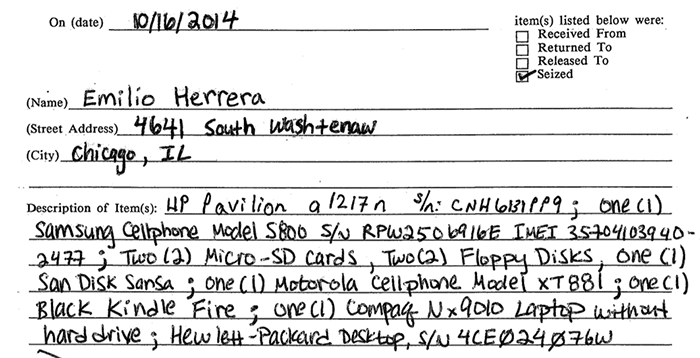 On (date) 10/16/2014
item(s) listed below were:
Received From
Returned To
Released To
Seized
(Name) Emilio Herrera
(Street Address) 4641 South Washtenaw
(City) Chicago, IL
Description of Item(s): HP Pavilion a1217n S/n: CNH6131PP9; one(1)
Samsung Cellphone Model S800 S/N RPW2506916E IMEI 35704103940-
2477; Two(2) Micro-SD cards, Two(2) Floppy Disks, one(1)
San Disk Sansa; one(1) Motorola Cellphone Model XT881; one(1)
Black Kindle Fire; one(1) Compaq Nx9010 Laptop without
hard drive; Hewlett-Packard Desktop, S/N 4CE024076W